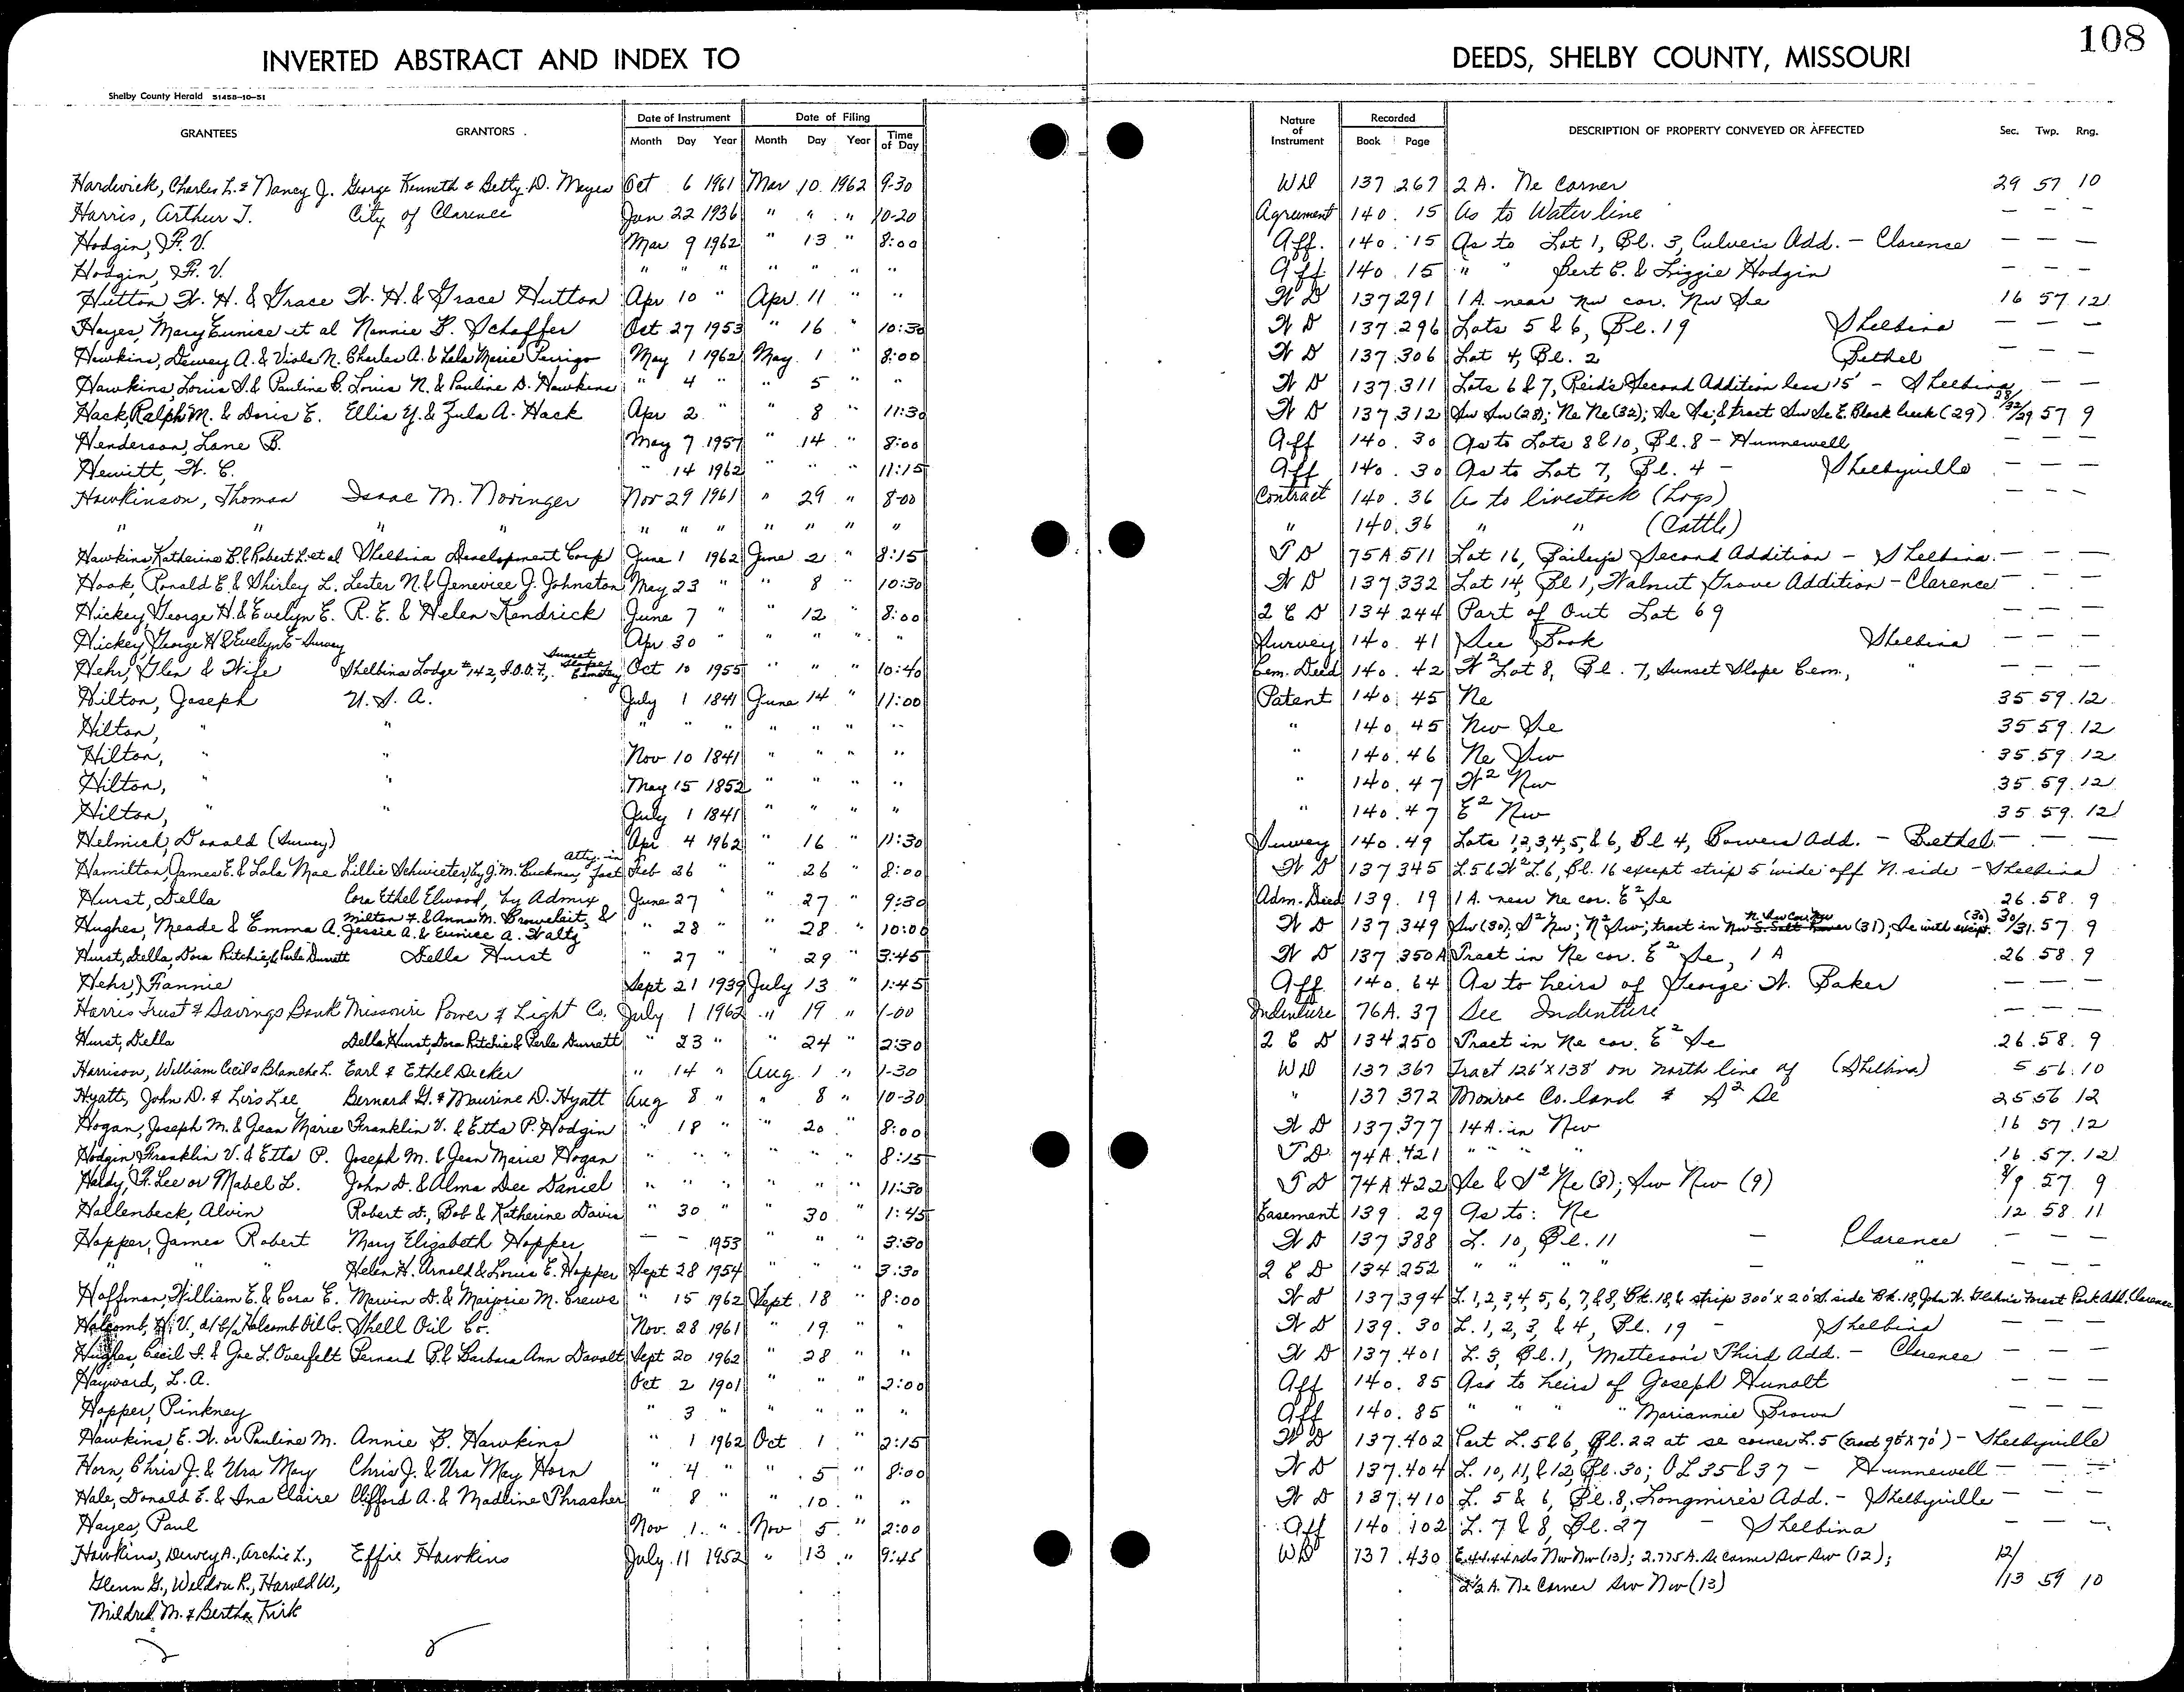 108
INVERTED ABSTRACT AND INDEX TO DEEDS, SHELBY COUNTY, MISSOURI
Shelby County Herald 51458-10-51
GRANTEES GRANTORS Date of Instrument Date of Filing Nature of Instrument Recorded DESCRIPTION OF PROPERTY CONVEYED OR AFFECTED Sec. Twp. Rng.
Month Day Year Month Day Year Time of Day Book Page
Hardwick, Charles L. & Nancy J. George Kenneth & Betty D. Mayes Oct 6 1961 Mar 10 1962 9-30 WD 137 267 2 A. Ne Corner 29 57 10
Harris, Arthur T. City of Clarence Jan 22 1936 " " " 10-20 Agreement 140 15 As to Water line — — —
Hodgin, F. V. Mar 9 1962 " 13 " 8:00 Aff. 140 15 As to Lot 1, Bl. 3, Culver's Add. - Clarence — — —
Hodgin, F. V. " " " " " " " Aff 140 15 " " Bert C. & Lizzie Hodgin — — —
Hutton W. H. & Grace W. H. & Grace Hutton Apr 10 " Apr. 11 " " W D 137 291 1 A. near Nw cor. Nw Se 16 57 12
Hayes, Mary Eunice et al Nannie B. Schaffer Oct 27 1953 " 16 " 10:30 W D 137 296 Lots 5 & 6, Bl. 19 Shelbina — — —
Hawkins, Dewey A. & Viola N. Charles A. & Lala Marie Perrigo May 1 1962 May 1 " 8:00 W D 137 306 Lot 4, Bl. 2 Bethel — — —
Hawkins, Louis D. & Pauline B. Louis N. & Pauline D. Hawkins " 4 " " 5 " " W D 137 311 Lots 6 & 7, Reid's Second Addition less 15' - Shelbina — —
Hack, Ralph M. & Doris E. Ellis Y. & Zula A. Hack Apr 2 " " 8 " 11:30 W D 137 312 Sw Sw (28); Ne Ne (32); Se Se, & tract Sw Se E. Black Creek (29) 28/32/29 57 9
Henderson, Lane B. May 7 1957 " 14 " 8:00 Aff 140 30 As to Lots 8 & 10, Bl. 8 - Hunnewell — — —
Hewitt, W. C. " 14 1962 " " " 11:15 Aff 140 30 As to Lot 7, Bl. 4 - Shelbyville — — —
Hawkinson, Thomas Isaac M. Novinger Nov 29 1961 " 29 " 8-00 Contract 140 36 As to livestock (Hogs) — — —
" " " " " " " " " " " " 140 36 " " (Cattle)
Hawkins, Katherine B. & Robert L. et al Shelbina Development Corp June 1 1962 June 2 " 8:15 T D 75A 511 Lot 16, Bailey's Second Addition - Shelbina — — —
Hook, Ronald E. & Shirley L. Lester N. & Genevieve J. Johnston May 23 " " 8 " 10:30 W D 137 332 Lot 14, Bl 1, Walnut Grove Addition - Clarence — — —
Hickey, George H. & Evelyn E. R. E. & Helen Kendrick June 7 " " 12 " 8:00 2 C D 134 244 Part of Out Lot 69 — — —
Hickey, George H & Evelyn E - Survey Apr 30 " " " " " Survey 140 41 See Book Shelbina — — —
Hehr, Glen & Wife Shelbina Lodge #142, I.O.O.F., Sunset Slope Cemetery Oct 10 1955 " " " 10:40 Cem. Deed 140 42 W² Lot 8, Bl. 7, Sunset Slope Cem., " — — —
Hilton, Joseph U. S. A. July 1 1841 June 14 " 11:00 Patent 140 45 Ne 35 59 12
Hilton, " " " " " " " " " " 140 45 Nw Se 35 59 12
Hilton, " " Nov 10 1841 " " " " " 140 46 Ne Sw 35 59 12
Hilton, " " May 15 1852 " " " " " 140 47 W² Nw 35 59 12
Hilton, " " July 1 1841 " " " " " 140 47 E² Nw 35 59 12
Helmick, Donald (Survey) Apr 4 1962 " 16 " 11:30 Survey 140 49 Lots 1,2,3,4,5,& 6, Bl 4, Bowers Add. - Bethel — — —
Hamilton, James E. & Lola Mae Lillie Schwieter, by J. M. Buckman, Atty-in fact Feb 26 " " 26 " 8:00 W D 137 345 L.5 & W² L.6, Bl. 16 except strip 5' wide off N. side - Shelbina
Hurst, Della Cora Ethel Elwood, by Admrx June 27 " " 27 " 9:30 Adm. Deed 139 19 1 A. near Ne cor. E² Se 26 58 9
Hughes, Meade & Emma A. Milton F. & Anna M. & Jessie A. & Eunice A. Waltz " 28 " " 28 " 10:00 W D 137 349 Sw (30); S² Nw; N² Sw; tract in (31); Se with (30) 30/31 57 9
Hurst, Della, Dora Ritchie & Perle Durrett Della Hurst " 27 " " 29 " 3:45 W D 137 350A Tract in Ne cor. E² Se, 1 A 26 58 9
Hehr, Fannie Sept 21 1939 July 13 " 1:45 Aff. 140 64 As to heirs of George W. Baker — — —
Harris Trust & Savings Bank Missouri Power & Light Co. July 1 1962 " 19 " 1-00 Indenture 76A 37 See Indenture — — —
Hurst, Della Della Hurst, Dora Ritchie & Perle Durrett " 23 " " 24 " 2:30 2 C D 134 250 Tract in Ne cor. E² Se 26 58 9
Harrison, William Cecil & Blanche L. Earl & Ethel Decker " 14 " Aug 1 " 1-30 WD 137 367 Tract 126' x 138' on north line of (Shelbina) 5 56 10
Hyatt, John D. & Lois Lee Bernard G. & Maurine D. Hyatt Aug 8 " " 8 " 10-30 " 137 372 Monroe Co. land & S² Se 25 56 12
Hogan, Joseph M. & Jean Marie Franklin V. & Etta P. Hodgin " 18 " " 20 " 8:00 W D 137 377 14 A. in Nw 16 57 12
Hodgin, Franklin V. & Etta P. Joseph M. & Jean Marie Hogan " " " " " " 8:15 T D 74A 421 " " " " 16 57 12
Haldy, F. Lee or Mabel L. John D. & Alma Dee Daniel " " " " " " 11:30 T D 74A 422 Se & S² Ne (8); Sw Nw (9) 8/9 57 9
Hollenbeck, Alvin Robert D., Bob & Katherine Davis " 30 " " 30 " 1:45 Easement 139 29 As to: Ne 12 58 11
Hopper, James Robert Mary Elizabeth Hopper — — 1953 " " " 3:30 W D 137 388 L. 10, Bl. 11 - Clarence — — —
" " " Helen H. Arnold & Louis E. Hopper Sept 28 1954 " " " 3:30 2 C D 134 252 " " " " - " — — —
Hoffman, William E. & Cora E. Marvin D. & Marjorie M. Crews " 15 1962 Sept. 18 " 8:00 W D 137 394 L. 1,2,3,4,5,6,7,&8, Bk. 18, & strip 300' x 20' S. side Bk. 18, John W. Forest Park Add. Clarence
Holcomb, H. V., d/b/a Holcomb Oil Co. Shell Oil Co. Nov. 28 1961 " 19 " " W D 139 30 L. 1, 2, 3, & 4, Bl. 19 - Shelbina — — —
Hughes, Cecil I. & Joe L. Overfelt Bernard B. & Barbara Ann Davolt Sept 20 1962 " 28 " " W D 137 401 L. 3, Bl. 1, Matteson's Third Add. - Clarence — — —
Hayward, L. A. Oct 2 1901 " " " 2:00 Aff 140 85 As to heirs of Joseph Hunolt — — —
Hopper, Pinkney " 3 " " " " " Aff 140 85 " " " " Mariannie Brown — — —
Hawkins, E. W. or Pauline M. Annie B. Hawkins " 1 1962 Oct 1 " 2:15 W D 137 402 Part L. 5 & 6, Bl. 22 at se corner L. 5 (tract 95' x 70') - Shelbyville
Horn, Chris J. & Ura May Chris J. & Ura May Horn " 4 " " 5 " 8:00 W D 137 404 L. 10, 11, & 12, Bl. 30; OL 35 & 37 - Hunnewell — — —
Hale, Donald E. & Ina Claire Clifford A. & Madline Thrasher " 8 " " 10 " " W D 137 410 L. 5 & 6, Bl. 8, Longmire's Add. - Shelbyville — — —
Hayes, Paul Nov 1 " Nov 5 " 2:00 Aff 140 102 L. 7 & 8, Bl. 27 - Shelbina — — —
Hawkins, Dewey A., Archie L., Effie Hawkins July 11 1952 " 13 " 9:45 WD 137 430 E. 44.44 rds Nw Nw (13); 2.775 A. Se corner Sw Sw (12); 12/
Glenn G., Weldon R., Harold W., 2½ A. Ne Corner Sw Nw (13) /13 59 10
Mildred M. & Bertha Kirk